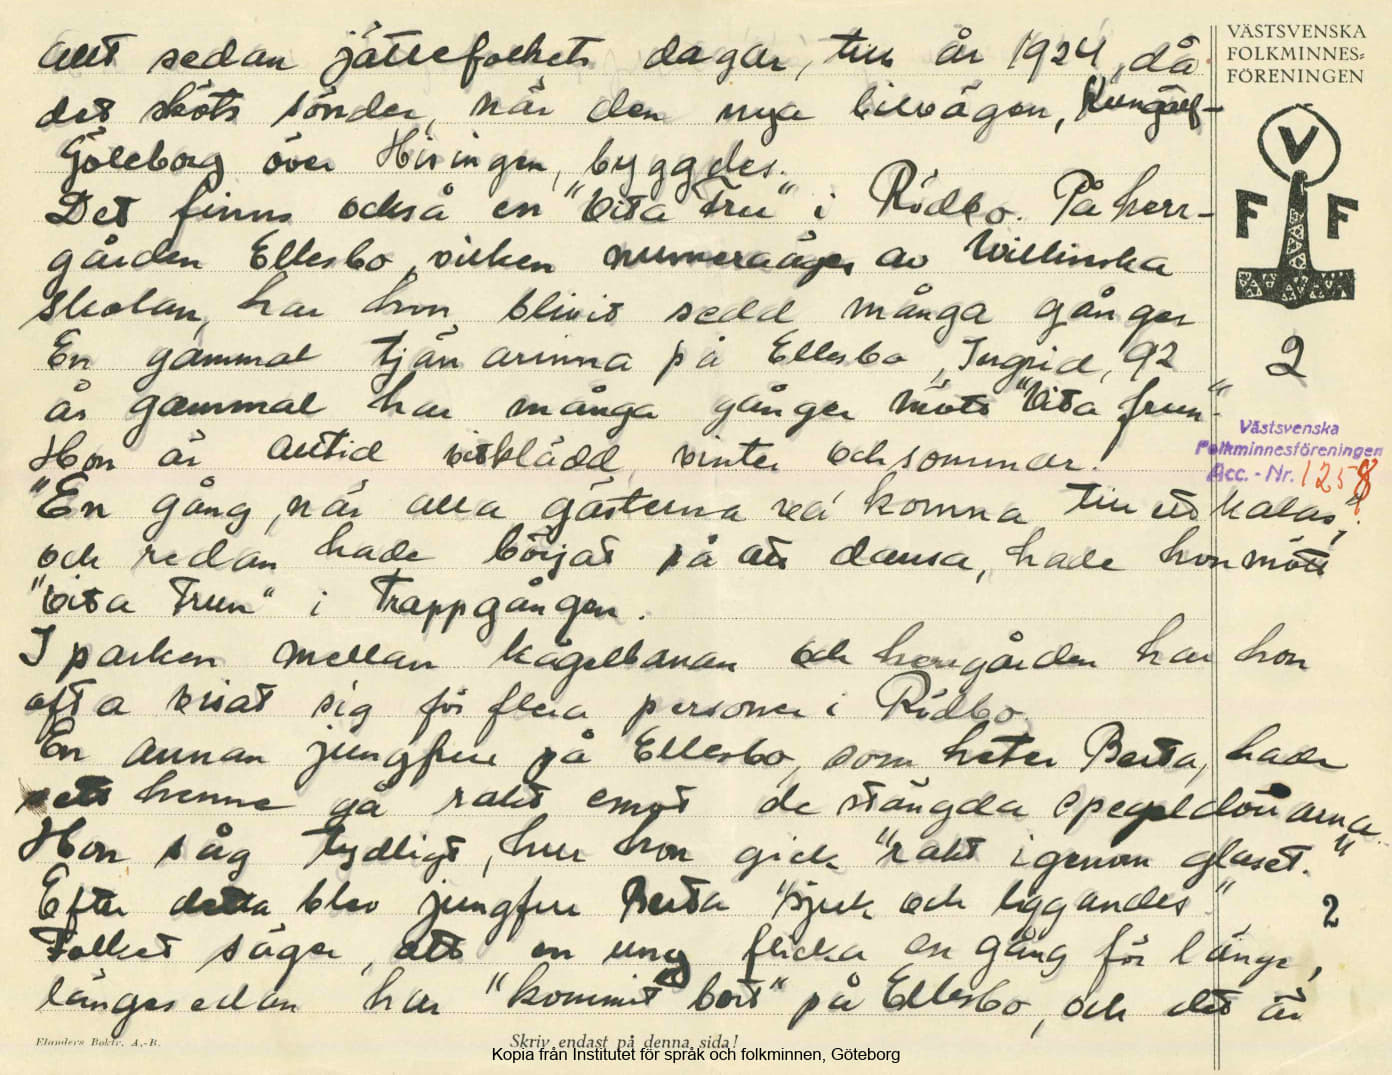 allt sedan jättefolkets dagar, till år 1924, då
det sköts sönder, när den nya bilvägen, Kungälf-
Göteborg över Hisingen, byggdes.
Det finns också en "Vita Fru" i Rödbo. På herr-
gården Ellesbo, vilken numera äges av Willinska
skolan, har hon blivit sedd många gånger
En gammal tjänarinna på Ellesbo, Ingrid, 92
år gammal har många gånger mött "Vita frun".
Hon är alltid vitklädd, vinter och sommar.
"En gång, när alla gästerna re'a' komna till ett kalas,"
och redan hade börjat på att dansa, hade hon mött
"Vita Frun" i trappgången.
I parken mellan kägelbanan och herrgården har hon
ofta visat sig för flera personer i Rödbo
En annan jungfru på Ellesbo, som heter Berta, hade
sett henne gå rakt emot de stängda spegeldörrarna.
Hon såg tydligt, hur hon gick "rakt igenom glaset."
Efter detta blev jungfru Berta "sjuk och liggandes".
Folket säger, att en ung flicka en gång för länge,
längesedan har "kommit bort" på Ellesbo, och det är
VÄSTSVENSKA
FOLKMINNES-
FÖRENINGEN
V
F F
2
Västsvenska
Folkminnesföreningen
Acc. - Nr. 1258
2
Elanders Boktr. A.-B.
Skriv endast på denna sida!
Kopia från Institutet för språk och folkminnen, Göteborg